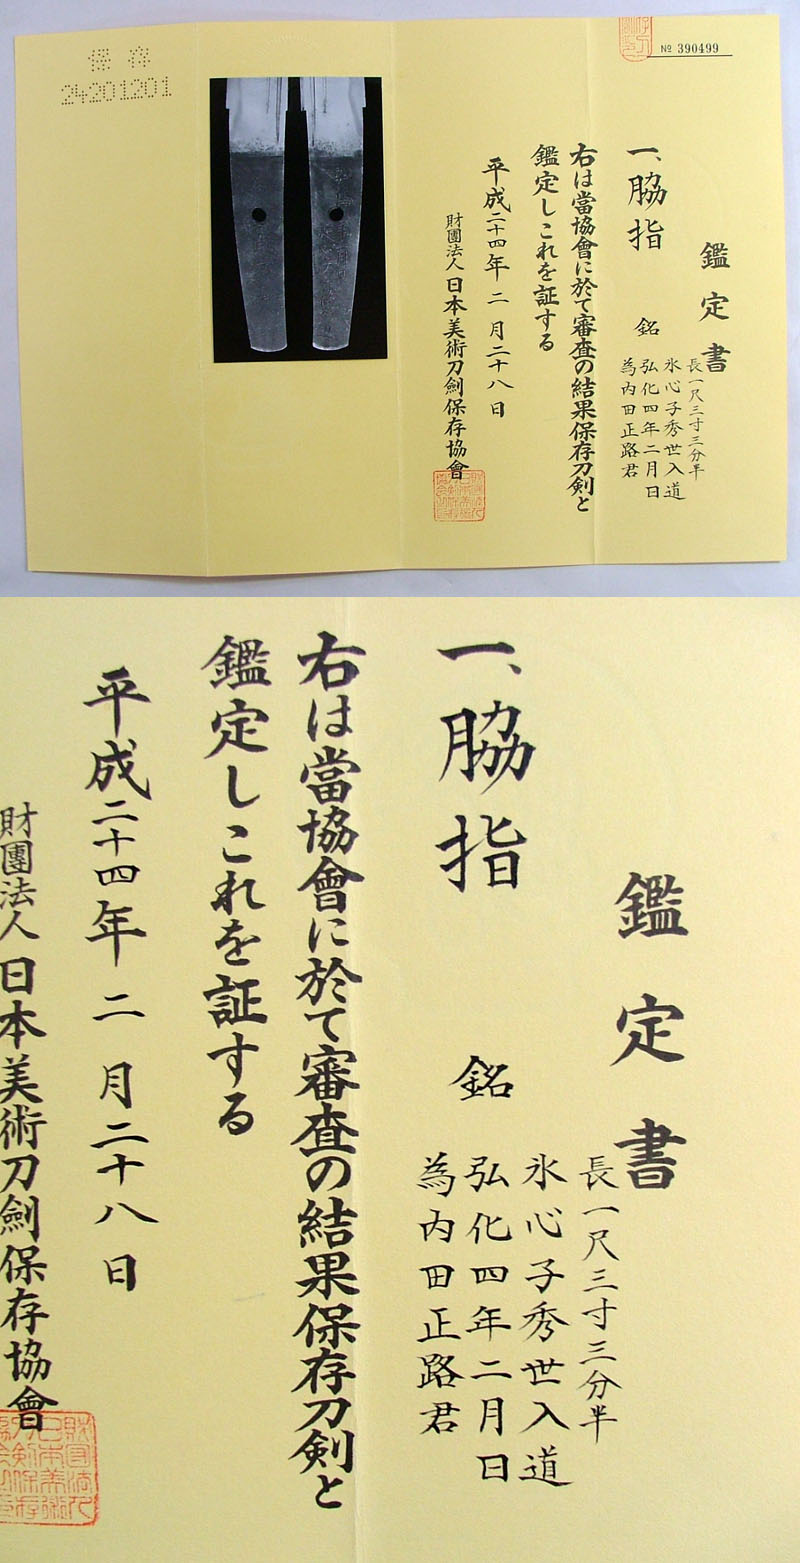 保存
24201201
№ 390499
鑑定書
一、脇指
長一尺三寸三分半
銘
氷心子秀世入道
弘化四年二月日
為内田正路君
右は當協會に於て審査の結果保存刀剣と
鑑定しこれを証する
平成二十四年二月二十八日
財團法人日本美術刀劍保存協會
鑑定書
一、脇指
長一尺三寸三分半
銘
氷心子秀世入道
弘化四年二月日
為内田正路君
右は當協會に於て審査の結果保存刀剣と
鑑定しこれを証する
平成二十四年二月二十八日
財團法人日本美術刀劍保存協會